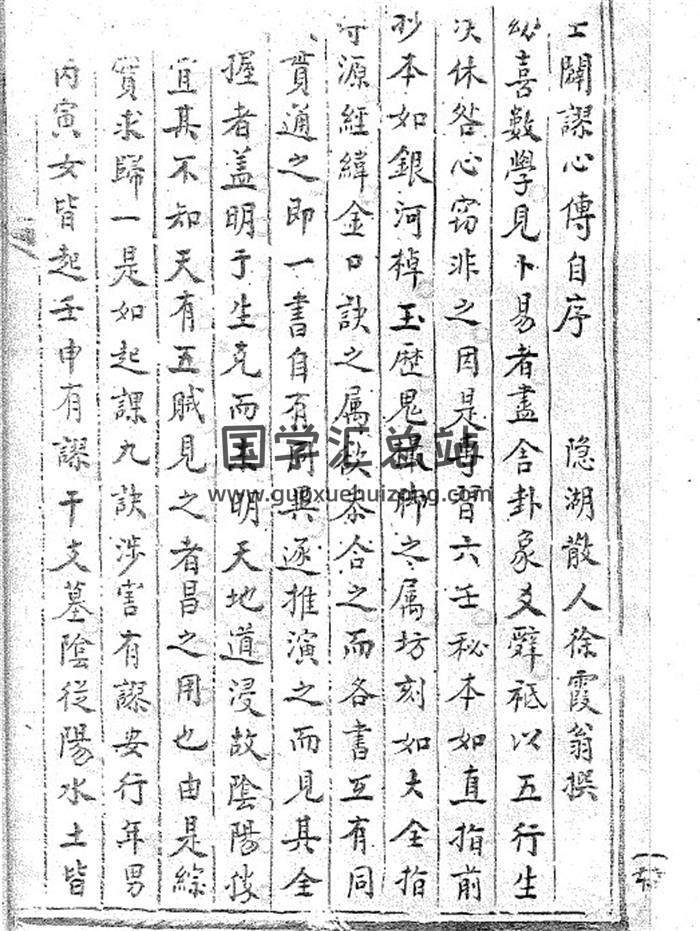 壬闢謬心傳自序 隐湖散人徐霞翁撰
喜數學見卜易者盡舍卦象爻辭袛以五行生
决休咎心窃非之因是專習六壬秘本如直指前
抄本如銀河棹玉歷鬼之属坊刻如大全指
源經緯金口訣之属欲叅合之而各書互有同
貫通之即一書自有同異逐推演之而見其全
握者盖明于生克而未明天地道浸故陰陽
宜其不知天有五賊見之者昌之用也由是綜
實求歸一是如起課九訣涉害有謬安行年男
丙寅女皆起壬申有謬干支墓陰從陽水土皆
国学汇总站
www.guoxuehuizong.com